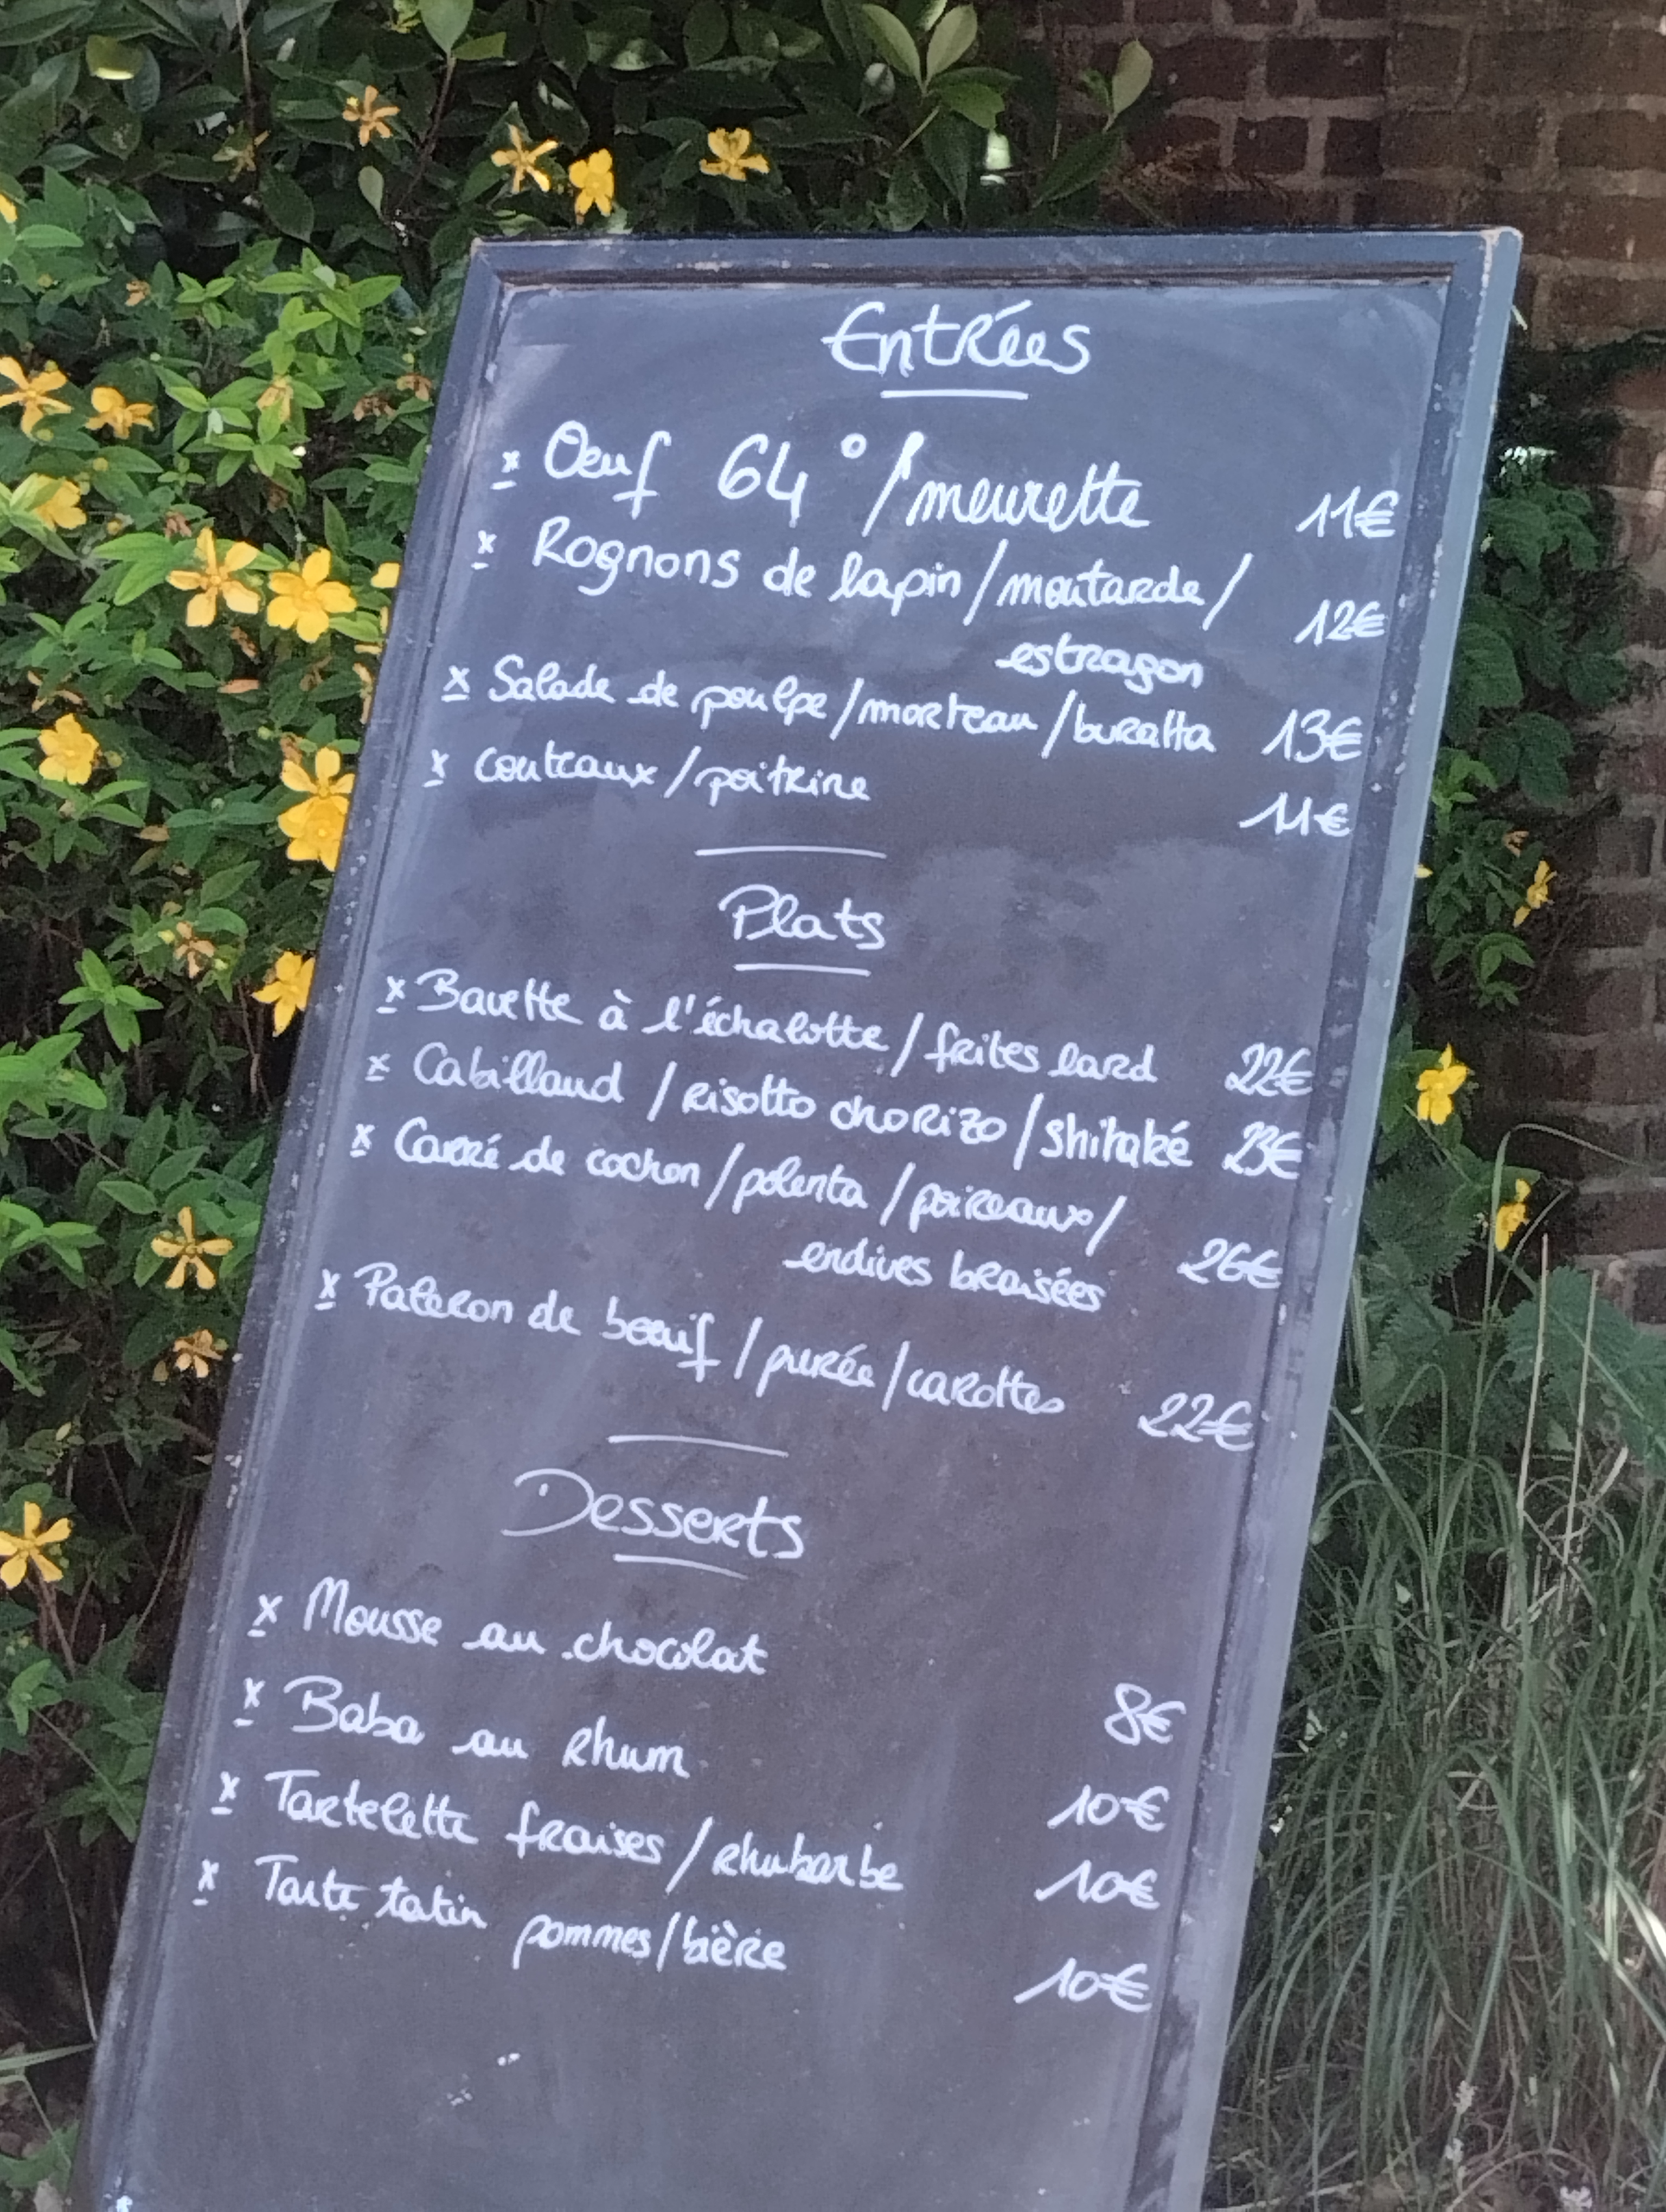 Entrées
x Oeuf 64°/meurette 11€
x Rognons de lapin/moutarde/ 12€
estragon
x Salade de poulpe/morteau/buratta 13€
x couteaux/poitrine 11€
Plats
x Bavette à l'échalotte/frites lard 22€
x Cabillaud/risotto chorizo/shitaké 23€
x Carré de cochon/polenta/poireaux/
endives braisées 26€
x Paleron de boeuf/purée/carottes 22€
Desserts
x Mousse au chocolat 8€
x Baba au rhum 10€
x Tartelette fraises/rhubarbe 10€
x Tarte tatin pommes/bière 10€